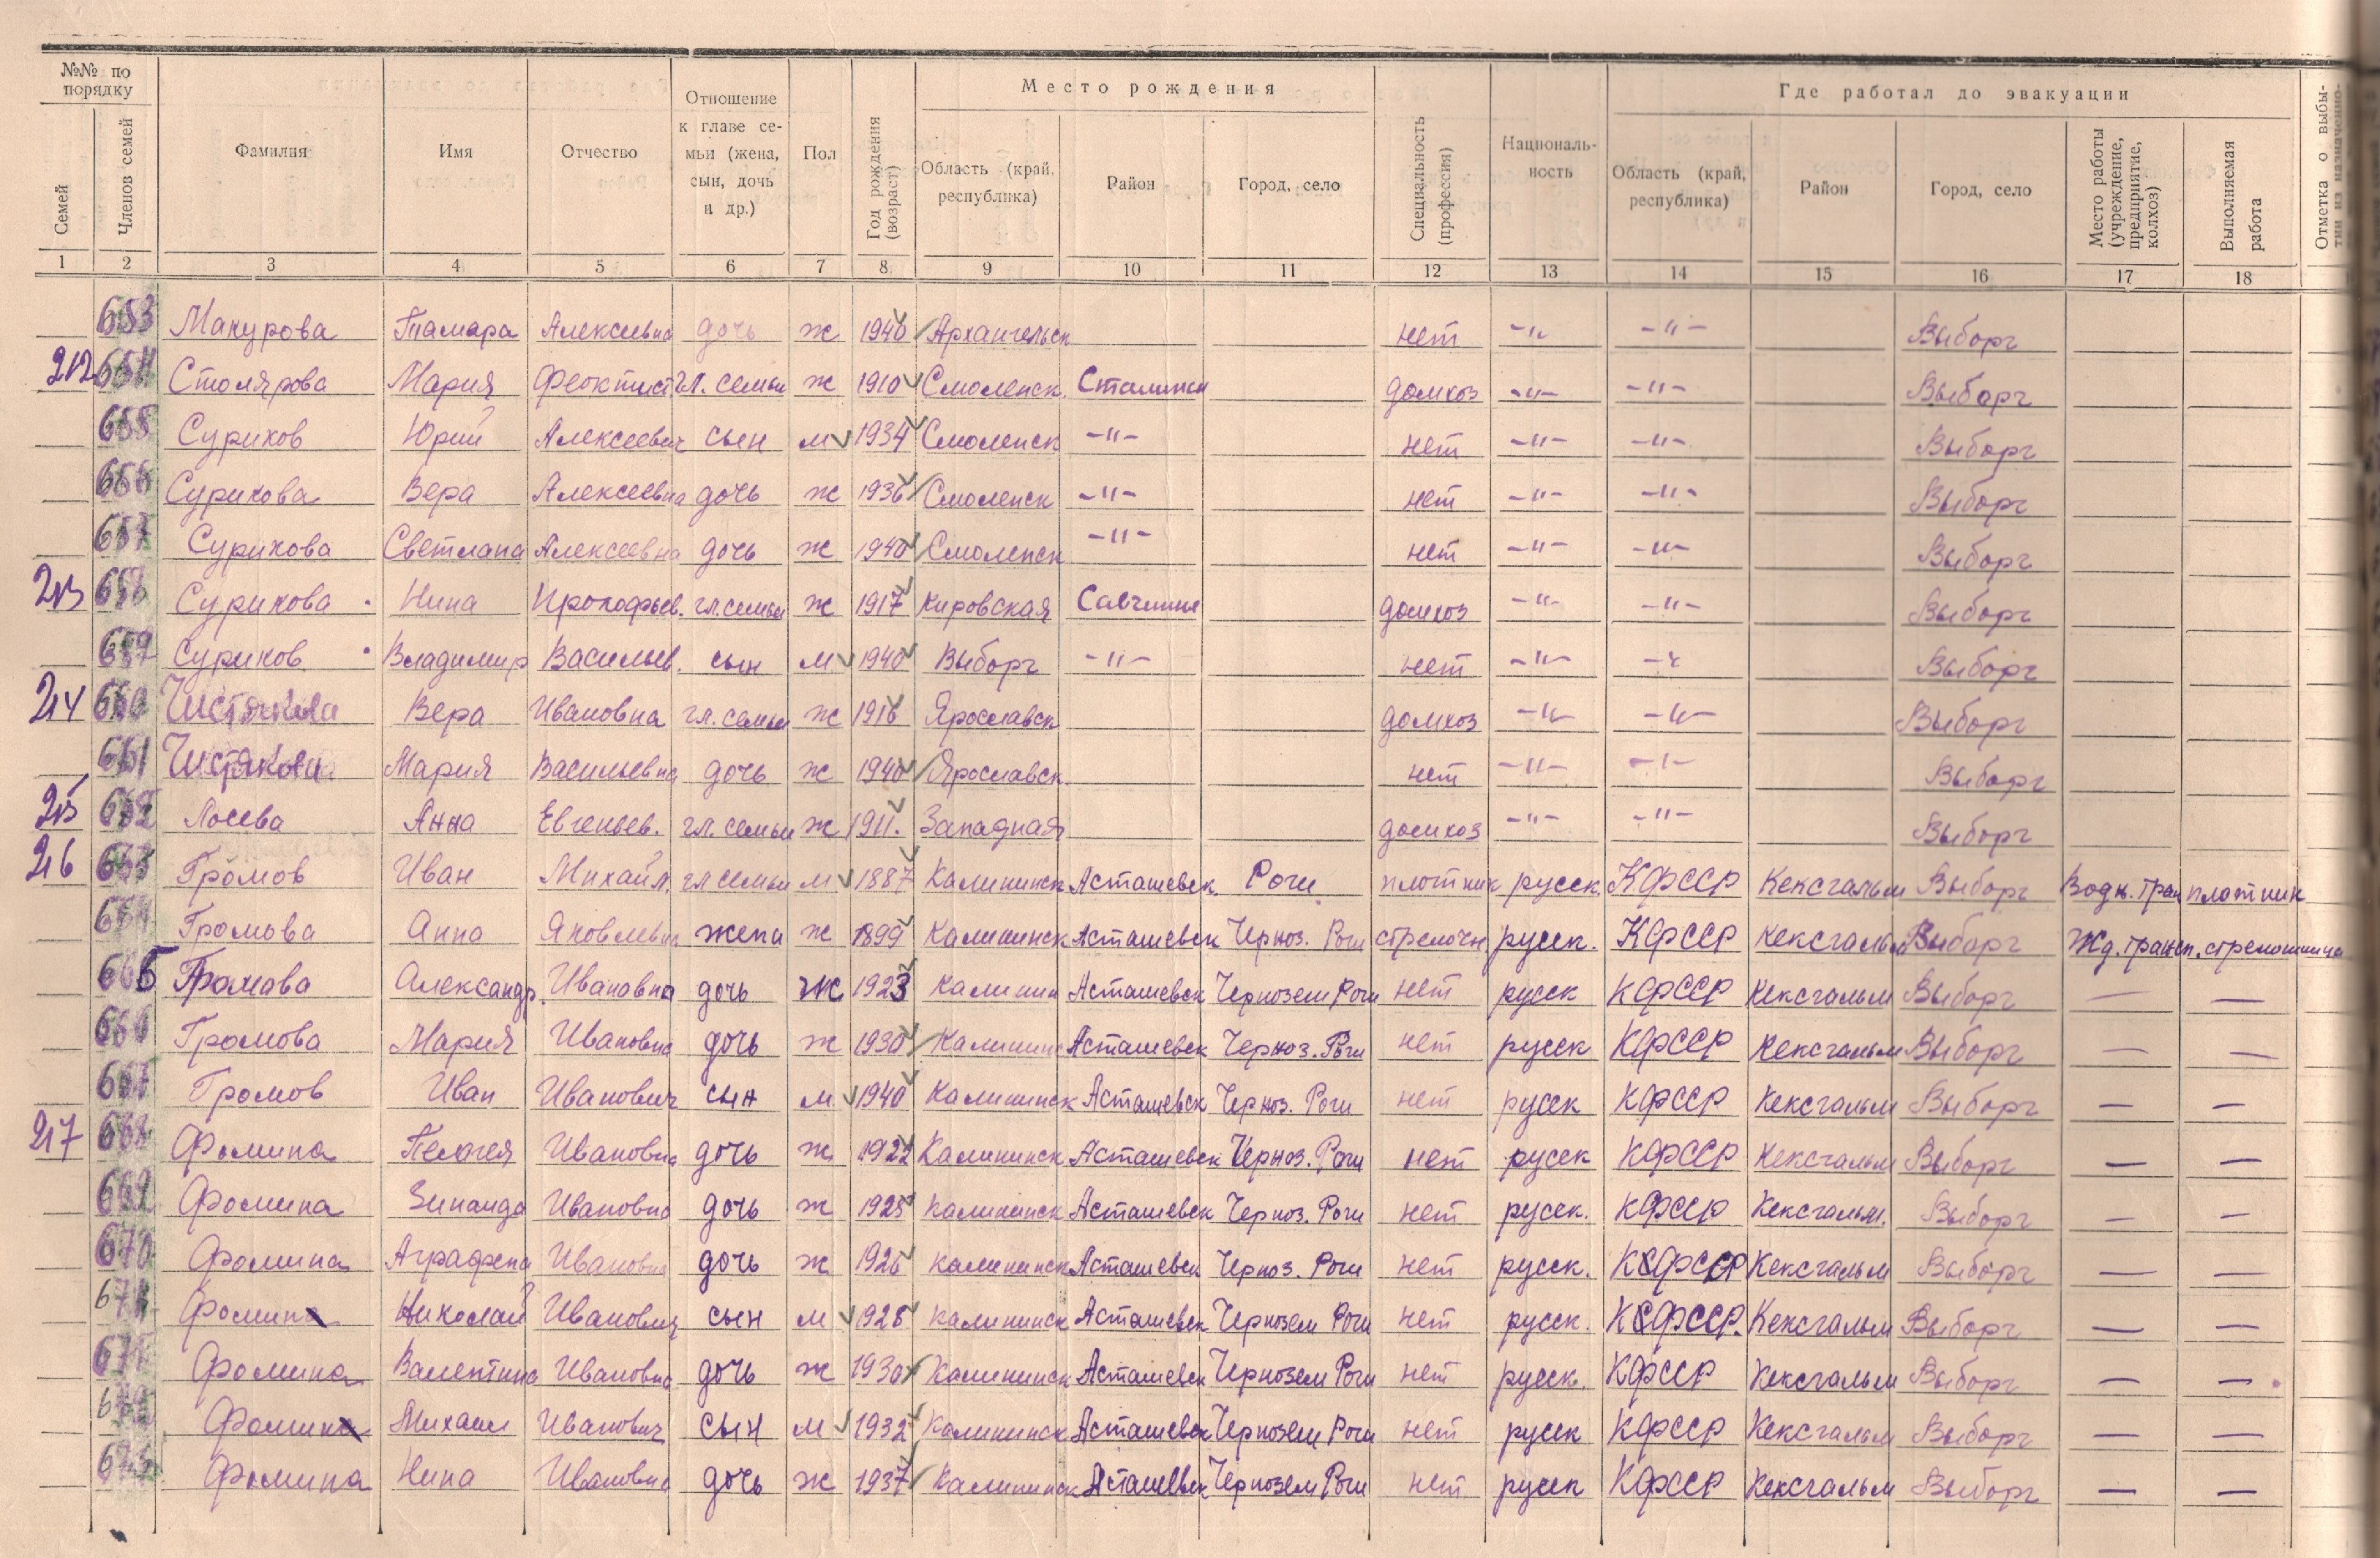 №№ по порядку
Место рождения
Где работал до эвакуации
Семей
Членов семей
Фамилия
Имя
Отчество
Отношение к главе семьи (жена, сын, дочь и др.)
Пол
Год рождения (возраст)
Область (край, республика)
Район
Город, село
Специальность (профессия)
Националь-ность
Область (край, республика)
Район
Город, село
Место работы (учреждение, предприятие, колхоз)
Выполняемая работа
Отметка о выбы-
1 2 3 4 5 6 7 8 9 10 11 12 13 14 15 16 17 18
653 Макурова Тамара Алексеевна дочь ж 1940 Архангельск нет -"- -"- Выборг
212 654 Столярова Мария Феоктист гл. семьи ж 1910 Смоленск. Сталинск домхоз -"- -"- Выборг
655 Суриков Юрий Алексеевич сын м 1934 Смоленск -"- нет -"- -"- Выборг
656 Сурикова Вера Алексеевна дочь ж 1936 Смоленск -"- нет -"- -"- Выборг
657 Сурикова Светлана Алексеевна дочь ж 1940 Смоленск -"- нет -"- -"- Выборг
213 658 Сурикова Нина Прокофьев. гл. семьи ж 1917 Кировская домхоз -"- -"- Выборг
659 Суриков Владимир Васильев. сын м 1940 Выборг -"- нет -"- -"- Выборг
214 660 Чистякова Вера Ивановна гл. семьи ж 1916 Ярославск домхоз -"- -"- Выборг
661 Чистякова Мария Васильевна дочь ж 1940 Ярославск. нет -"- -"- Выборг
215 662 Лосева Анна Евгеньев. гл. семьи ж 1911. Западная домхоз -"- -"- Выборг
216 663 Громов Иван Михайл. гл семьи м 1887 Калининск Асташевск. Роги плотник русск. КФССР Кексгальм Выборг Водн. тран плотник
664 Громова Анна Яковлевна жена ж 1899 Калининск Асташевск Черноз. Роги стрелочн. русск. КФССР Кексгальм Выборг Жд. трансп. стрелошница
665 Громова Александр. Ивановна дочь ж 1923 Калинин Асташевск Чернозем Роги нет русск КФССР Кексгальм Выборг — —
666 Громова Мария Ивановна дочь ж 1930 Калининс Асташевск Черноз. Роги нет русск КФССР Кексгальм Выборг — —
667 Громов Иван Иванович сын м 1940 Калининск Асташевск Черноз. Роги нет русск КФССР Кексгальм Выборг — —
217 668 Фомина Пелагея Ивановна дочь ж 1922 Калининск Асташевск Черноз. Роги нет русск КФССР Кексгальм Выборг — —
669 Фомина Зинаида Ивановна дочь ж 1925 Калининск Асташевск Черноз. Роги нет русск. КФССР Кексгальм. Выборг — —
670 Фомина Аграфена Ивановна дочь ж 1926 Калининск Асташевск Черноз. Роги нет русск. КФССР Кексгальм Выборг — —
Фомин Николай Иванович сын м 1928 Калининск Асташевск Чернозем Роги нет русск. КФССР. Кексгальм Выборг — —
Фомина Валентина Ивановна дочь ж 1930 Калининск Асташевск Чернозем Роги нет русск. КФССР Кексгальм Выборг — —
Фомин Михаил Иванович сын м 1932 Калининск Асташевск Чернозем Роги нет русск КФССР Кексгальм Выборг — —
673 Фомина Нина Ивановна дочь ж 1937 Калининск Асташевск Чернозем Роги нет русск КФССР Кексгальм Выборг — —